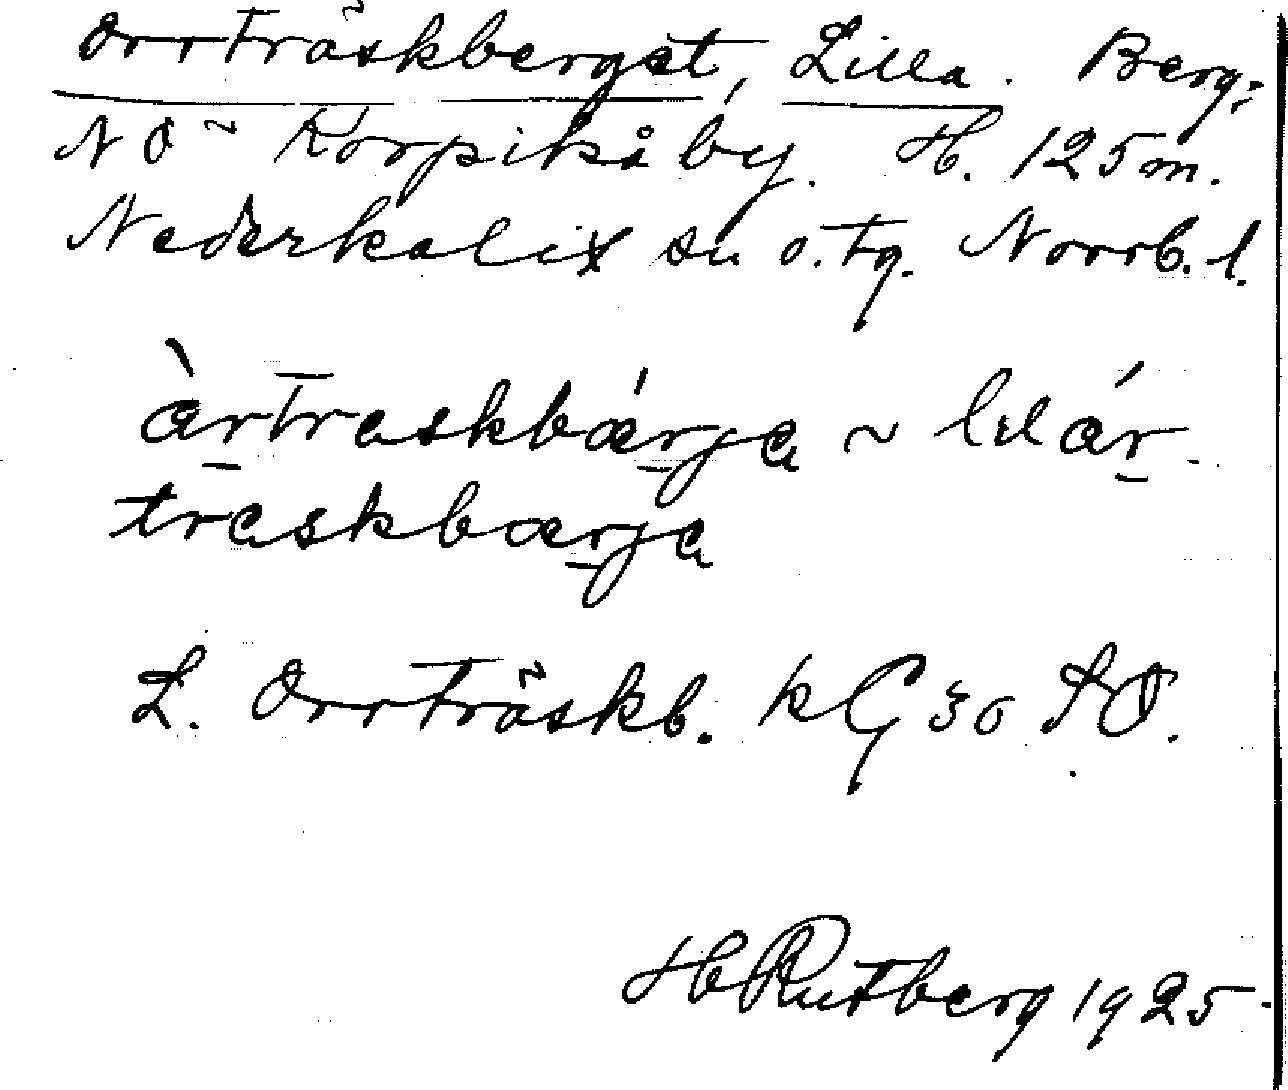 Orrträskberget, Lilla. Berg:
NÖ Korpikå by. H. 125 m.
Nederkalix sn o. tg. Norrb. l.
àrtraskbǽrja ~ lıl ár-
traskbærja
L. Orrträskb. kG 30 SO.
H Rutberg 1925.